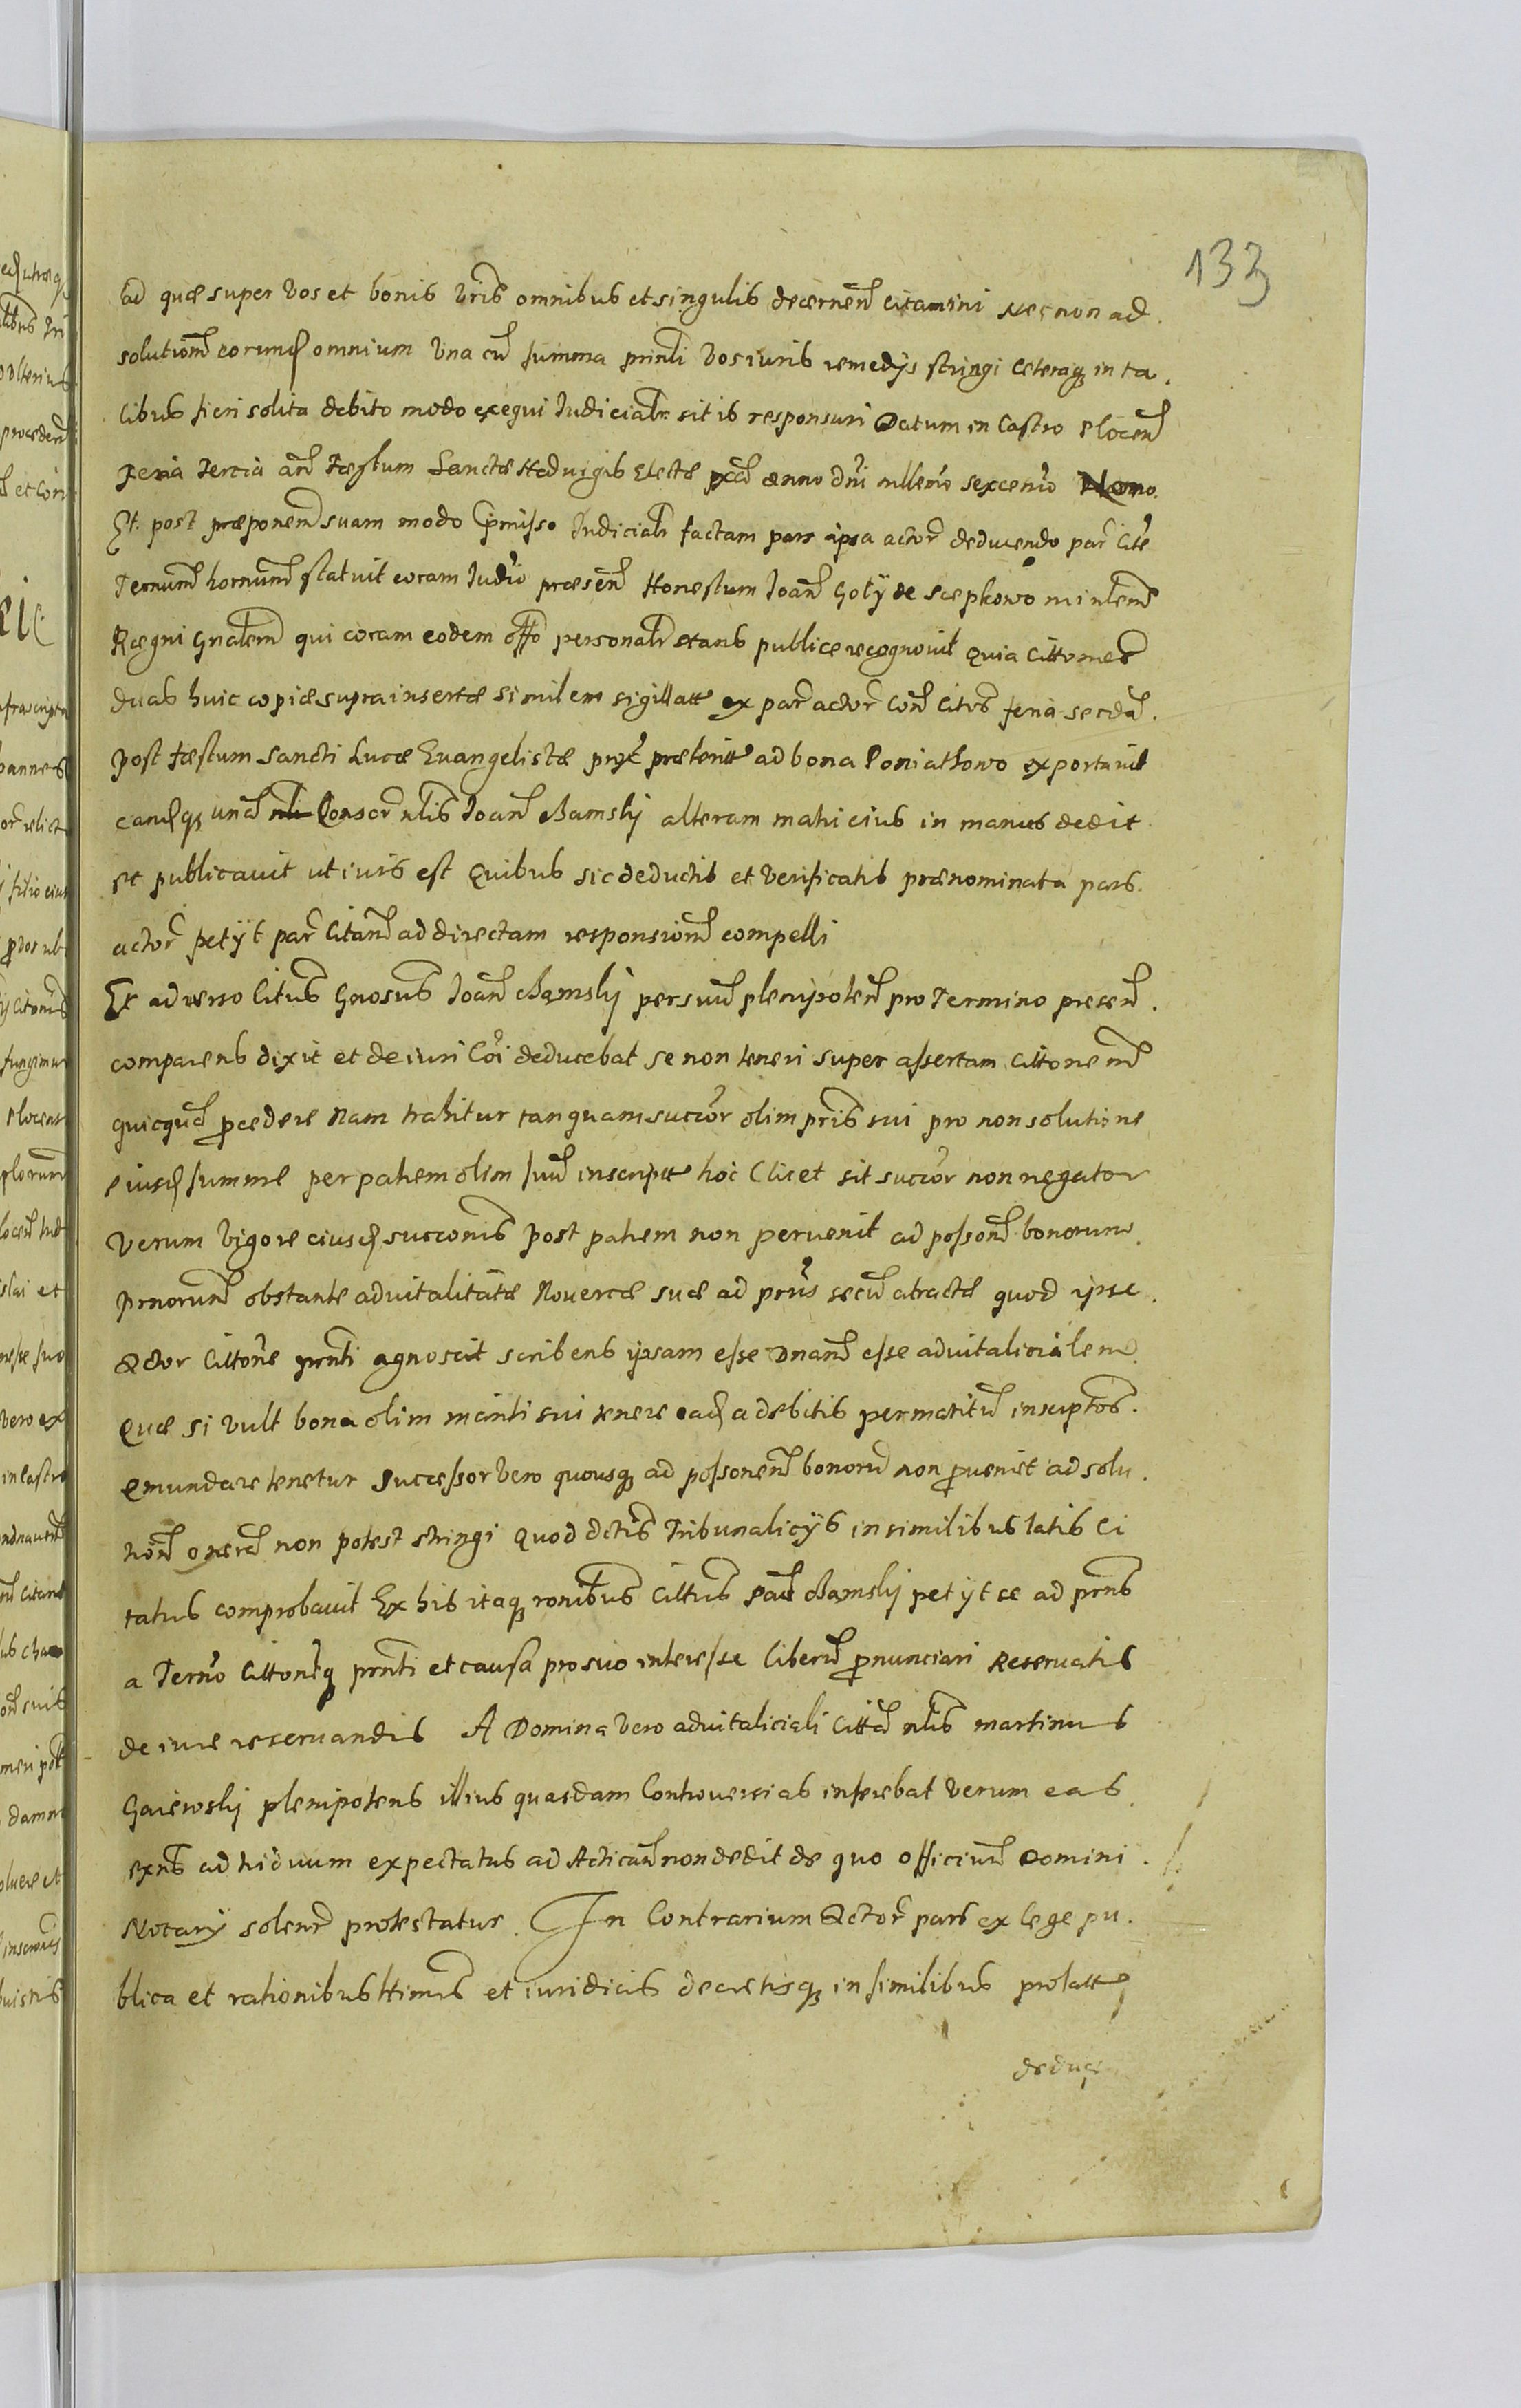 133
ad quæ super vos et bonis vris omnibus et singulis decernend citamini Necnon ad
solutionem eorund omnium Vna cu summa prinli vos iuris remedijs stringi Ceteraq in ta
libus fieri solita debito modo exequi Iudicialr sitis responsuri Datum in Castro Plocen
Feria Tercia an Fæstum Sanctæ Heduigis Electæ pxa anno dni millemo sexcenmo Nono
Et post præponem suam modo pmisso Iudicialr factam pars ipsa actor deducendo par Cite
Termum hornum statuit coram Iudio præsen Honestum Ioan Goly de Scepkowo minlem
Rægni Gnalem qui coram eodem offo personalr stans publice recognouit Quia Cittones
duas huic copiæ supra insertæ similem sigillatt ex par actor Con Citos feria secda
post Fæstum Sancti Lucæ Euangelistæ prox præteritt ad bona Poniathowo exportauit
earuq una Consor nlis Ioan Bamsky alteram matri eius in manus dedit
et publicauit ut iuris est Quibus sic deductis et verificatis prænominata pars
actor petyt par Citatam ad directam responsionem compelli
Ex aduerso Citus Gnosus Ioan Bamsky per suum plenipoten pro Termino presen
comparens dixit et de iuri Coi deducebat se non teneri super assertam Cittonem
quicqud pcedere Nam trahitur tanquam succor olim pris sui pro non solutione
eiusd summe per patrem olim suum inscriptt hoc Licet sit succor non negatur
verum Vigore eiusd succonis post patrem non peruenit ad posson bonorum
prnorum obstante aduitalitate Nouercæ suæ ad prius secu atractæ quod ipse
Actor Cittone prnti agnoscit scribens ipsam esse Dnam esse aduitalicialem
Quæ si vult bona olim mariti sui tenere ead a debitis per maritu inscriptos
emundare tenetur Successor vero quousq ad possonem bonoru non puenit ad solu
tionem onera non potest stringi Quod dctis Tribunalicijs in similibus latis Ci
tatus comprobauit Ex his itaq ronibus Cittus Bamsky petyt se ad prns
a Termo Cittoneq prnti et causa pro suo interesse liberu pnunciari Reseruatis
de iure reseruandis A Domina vero aduitaliciali Citta nlis Martinus
Gaiewsky plenipotens illius quasdam Controuersias inferebat Verum eas
exns ad triduum expectatus ad Acticam non dedit de quo officium Domini
Notarij solenr protestatur. In Contrarium Actor pars ex lege pu
blica et rationibus ttimis et iuridicis decretisq in similibus prolatt
deduce